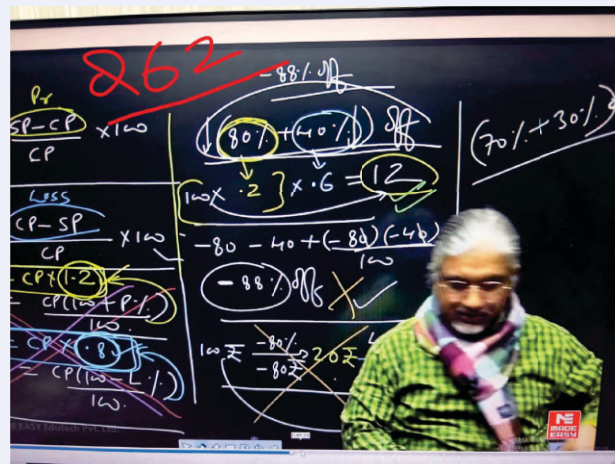 Q62
Pr
SP-CP
CP
×100
Loss
CP-SP
CP
×100
CP×1.2
= CP(100+P.%)
100.
= CP×.8
= CP(100-L.%)
100.
-88.% off
(80% + 40%) off
[100×.2]×.6 = 12
-80-40+(-80)(-40)
100
-88.% off
100₹ -80% 20₹
-80₹
(70%+30%)
EASY Edutech Pvt. Ltd.
ME
MADE
EASY